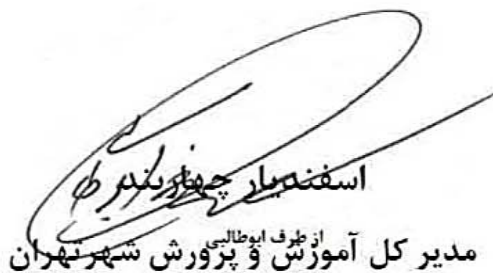 اسفندیار چهاربند
از طرف ابوطالبی
مدیر کل آموزش و پرورش شهرتهران